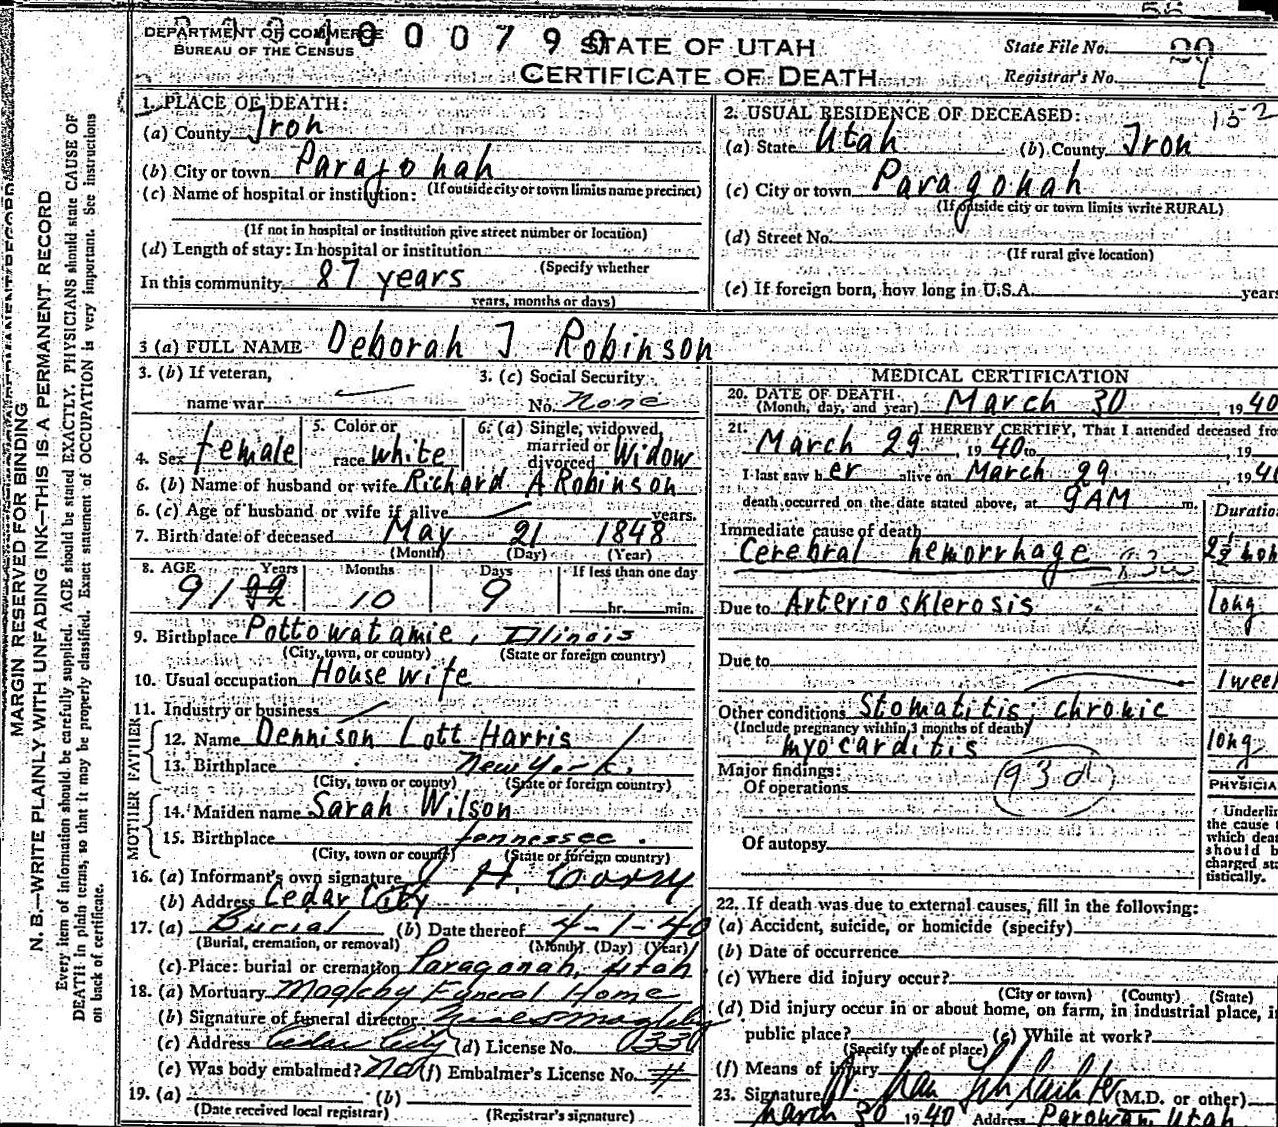 DEPARTMENT OF COMMERCE
BUREAU OF THE CENSUS
0 0 0 7 9
STATE OF UTAH
CERTIFICATE OF DEATH
State File No. 29
Registrar's No. 1
MARGIN RESERVED FOR BINDING
N. B.—WRITE PLAINLY WITH UNFADING INK—THIS IS A PERMANENT RECORD
Every item of information should be carefully supplied. AGE should be stated EXACTLY. PHYSICIANS should state CAUSE OF
DEATH in plain terms, so that it may be properly classified. Exact statement of OCCUPATION is very important. See instructions
on back of certificate.
1. PLACE OF DEATH:
(a) County Iron
(b) City or town Paragonah
(If outside city or town limits name precinct)
(c) Name of hospital or institution:
(If not in hospital or institution give street number or location)
(d) Length of stay: In hospital or institution
(Specify whether
In this community 87 years
years, months or days)
2. USUAL RESIDENCE OF DECEASED: 15-2
(a) State Utah (b) County Iron
(c) City or town Paragonah
(If outside city or town limits write RURAL)
(d) Street No.
(If rural give location)
(e) If foreign born, how long in U.S.A. years
3 (a) FULL NAME Deborah J Robinson
3. (b) If veteran,
name war
3. (c) Social Security
No. None
4. Sex female
5. Color or
race white
6. (a) Single, widowed,
married or
divorced Widow
6. (b) Name of husband or wife Richard A Robinson
6. (c) Age of husband or wife if alive years.
7. Birth date of deceased May 21 1848
(Month) (Day) (Year)
8. AGE Years Months Days If less than one day
91 10 9 hr. min.
9. Birthplace Pottowatamie, Illinois
(City, town, or county) (State or foreign country)
10. Usual occupation House wife
11. Industry or business
FATHER
12. Name Dennison Lott Harris
13. Birthplace New York.
(City, town or county) (State or foreign country)
MOTHER
14. Maiden name Sarah Wilson
15. Birthplace Tennessee.
(City, town or county) (State or foreign country)
16. (a) Informant's own signature H.
(b) Address Cedar City
17. (a) Burial (b) Date thereof 4-1-40
(Burial, cremation, or removal) (Month) (Day) (Year)
(c) Place: burial or cremation Paragonah, Utah
18. (a) Mortuary Magleby Funeral Home
(b) Signature of funeral director Magleby
(c) Address Cedar City (d) License No. 0330
(e) Was body embalmed? No (f) Embalmer's License No. #
19. (a) (b)
(Date received local registrar) (Registrar's signature)
MEDICAL CERTIFICATION
20. DATE OF DEATH
(Month, day, and year) March 30, 1940
21. I HEREBY CERTIFY, That I attended deceased fro
March 29, 1940 to , 19
I last saw her alive on March 29 1940
death occurred on the date stated above, at 9AM m.
Duration
Immediate cause of death
Cerebral hemorrhage
Due to Arteriosklerosis long
Due to
1 week
Other conditions Stomatitis; chronic
(Include pregnancy within 3 months of death)
myocarditis long
Major findings:
Of operations
(93d)
PHYSICIA
Underlin
the cause
which dea
should b
charged sta
tistically.
Of autopsy
22. If death was due to external causes, fill in the following:
(a) Accident, suicide, or homicide (specify)
(b) Date of occurrence
(c) Where did injury occur?
(City or town) (County) (State)
(d) Did injury occur in or about home, on farm, in industrial place, i
public place? (e) While at work?
(Specify type of place)
(f) Means of injury
23. Signature (M.D. or other)
March 30 1940 Address Parowan, Utah